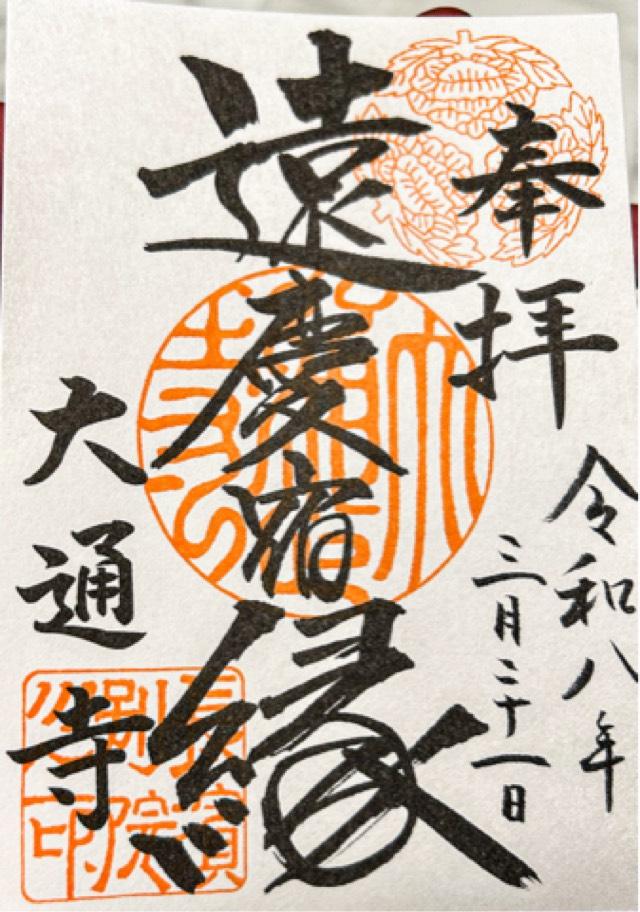 奉拝
令和八年
三月二十一日
遠慶宿縁
大通寺
長濱別院之印